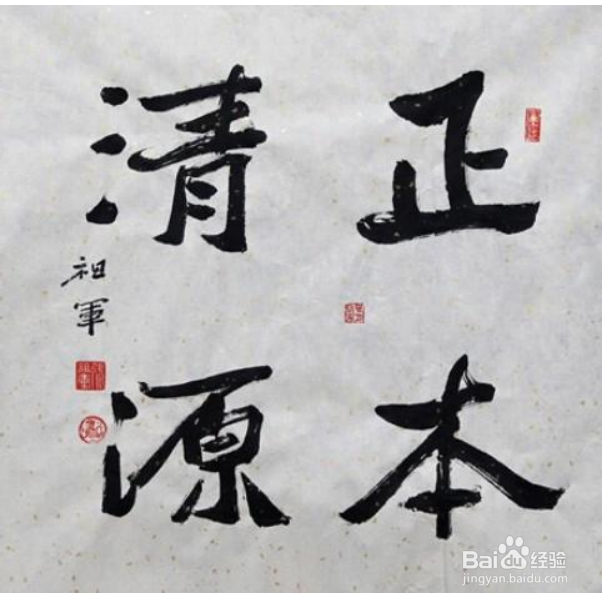 正本
清源
祖軍
Bai 经验
jingyan.baidu.com